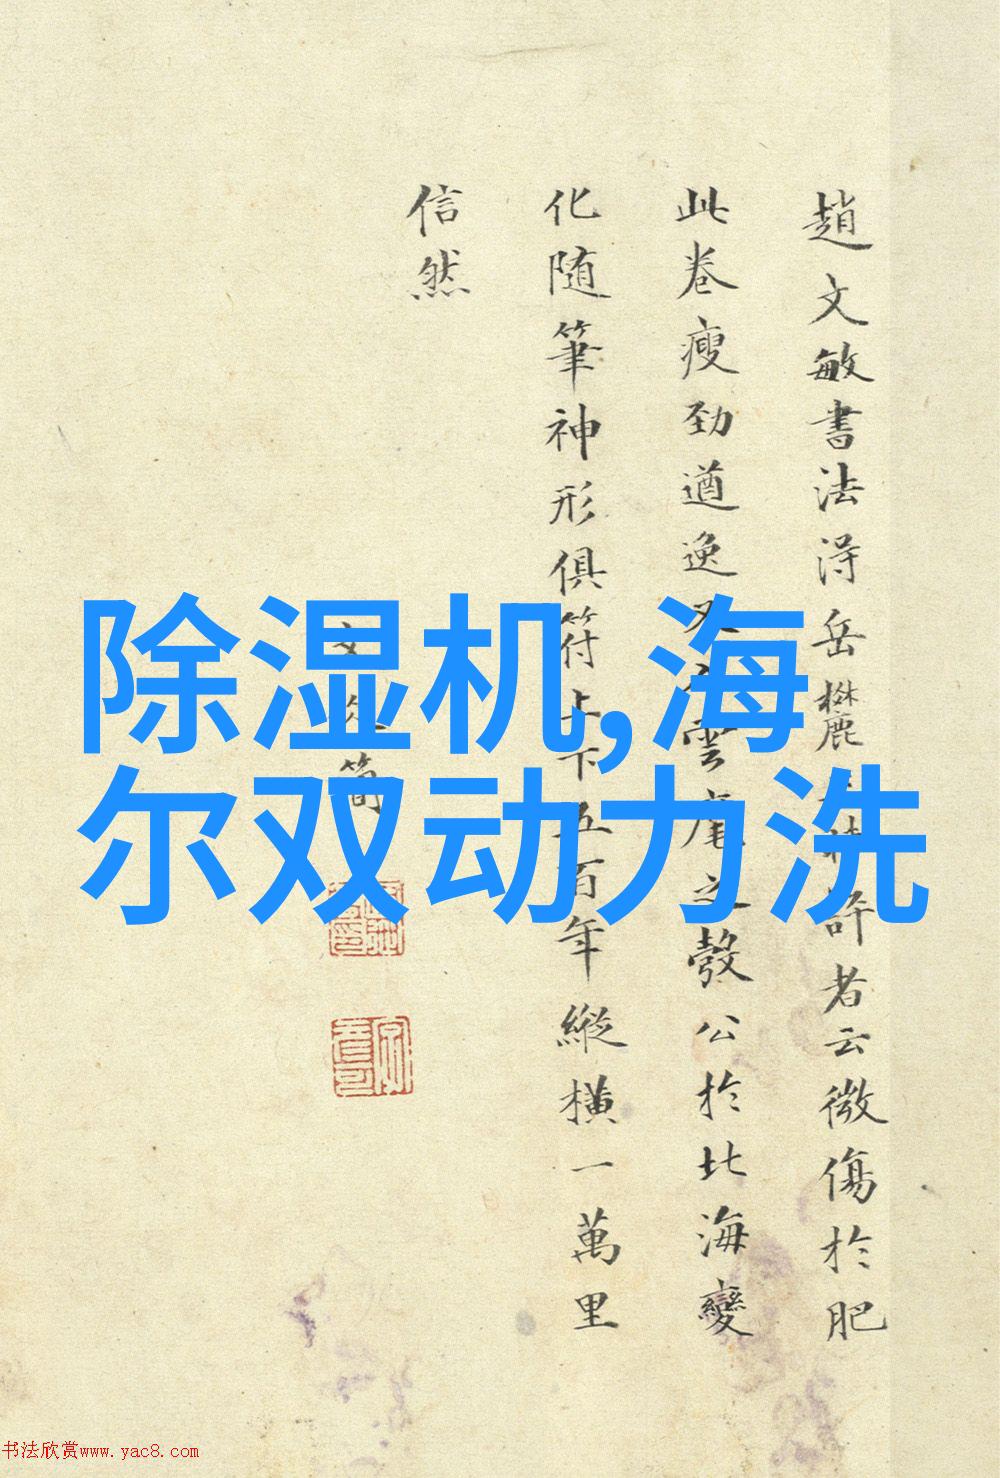 趙文敏書法得岳麓
許者云微傷於肥
此卷瘦勁遒逸
雲麾之發公於北海變
化随筆神形俱符上下五百年縱横一萬里
信然
除湿机,海
尔双动力洗
书法欣赏www.yac8.com